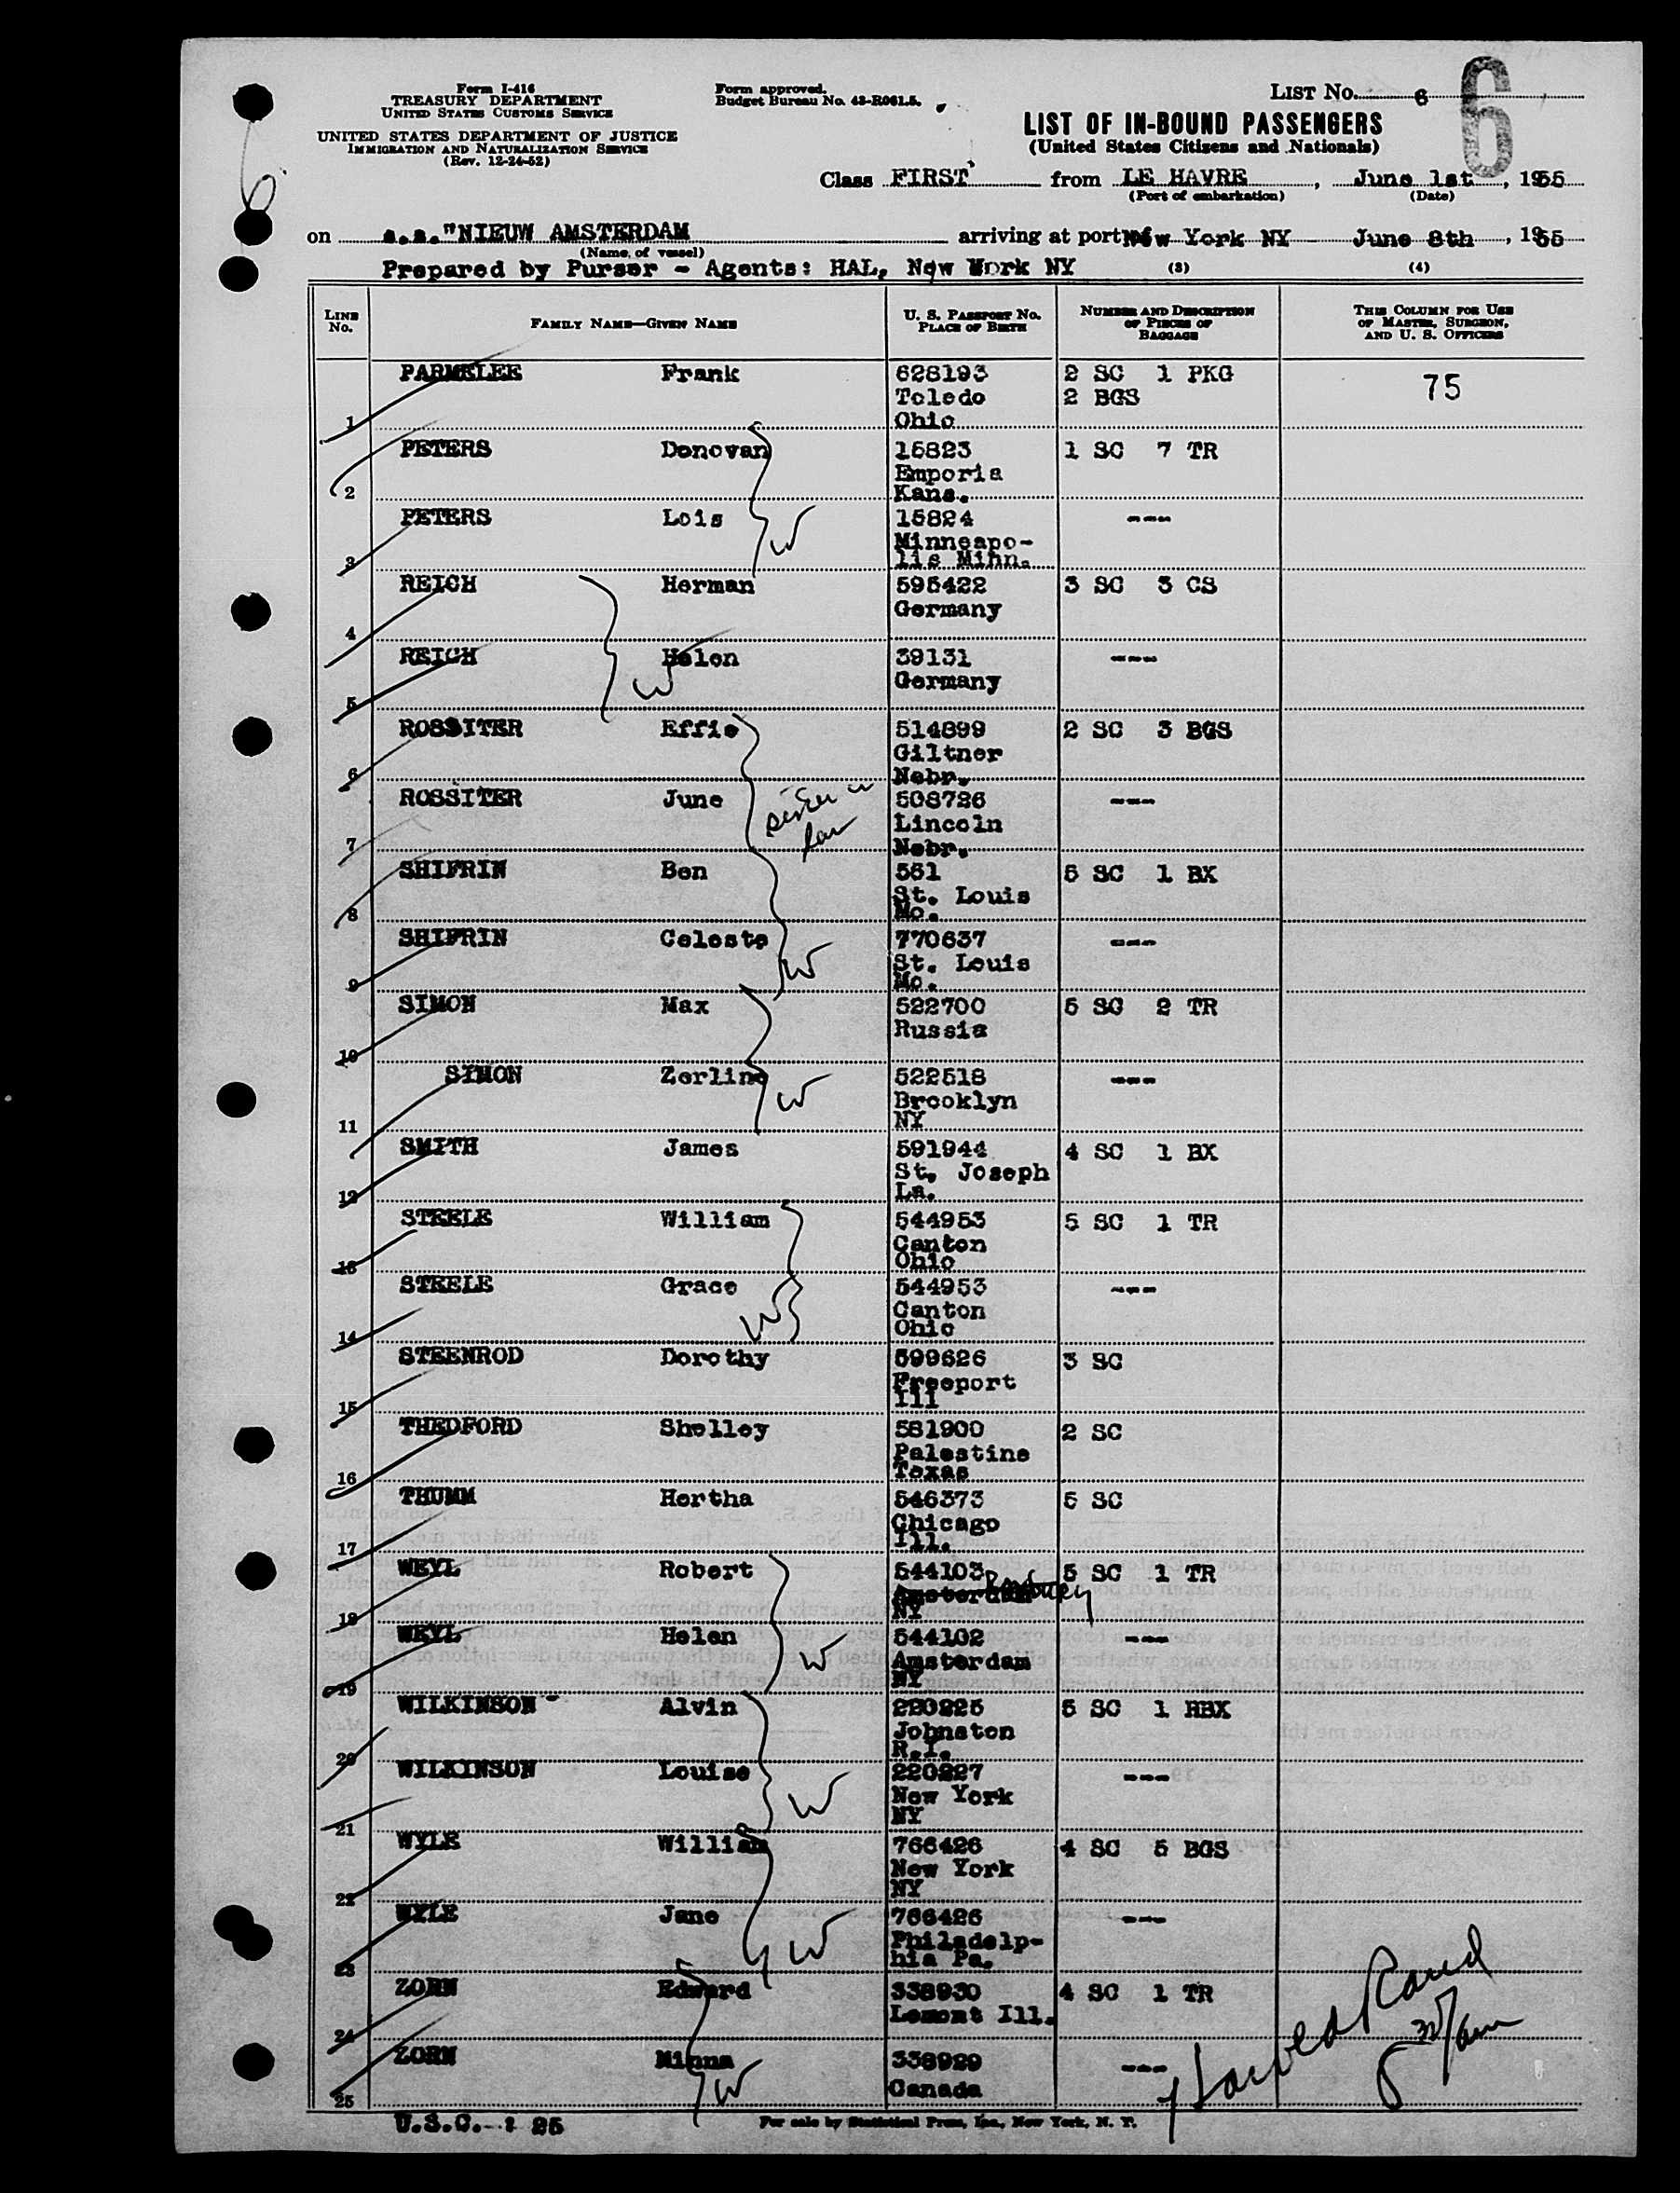 Form I-416
TREASURY DEPARTMENT
UNITED STATES CUSTOMS SERVICE
UNITED STATES DEPARTMENT OF JUSTICE
IMMIGRATION AND NATURALIZATION SERVICE
(Rev. 12-24-52)
Form approved.
Budget Bureau No. 43-R061.5.
LIST NO. 6
6
6
LIST OF IN-BOUND PASSENGERS
(United States Citizens and Nationals)
Class FIRST from LE HAVRE, June 1st, 1955
(Port of embarkation) (Date)
on s.s."NIEUW AMSTERDAM arriving at port of New York NY June 8th, 1955
(Name of vessel) (3) (4)
Prepared by Purser - Agents: HAL, New York NY
LINE No. FAMILY NAME—GIVEN NAME U. S. PASSPORT NO. PLACE OF BIRTH NUMBER AND DESCRIPTION OF PIECES OF BAGGAGE THIS COLUMN FOR USE OF MASTER, SURGEON, AND U. S. OFFICERS
PARMELEE Frank 628193 2 SC 1 PKG 75
Toledo 2 BGS
1 Ohio
PETERS Donovan 15823 1 SC 7 TR
Emporia
2 Kans.
PETERS Lois W 15824 ---
Minneapo-
3 lis Minn.
REICH Herman 595422 3 SC 3 CS
Germany
4
REICH Helen W 39131 ---
Germany
5
ROSSITER Effie 514899 2 SC 3 BGS
Giltner
6 Nebr.
ROSSITER June sister in law 508726 ---
Lincoln
7 Nebr.
SHIFRIN Ben 561 5 SC 1 BX
St. Louis
8 Mo.
SHIFRIN Celeste W 770637 ---
St. Louis
9 Mo.
SIMON Max 522700 5 SC 2 TR
Russia
10
SIMON Zerline W 522518 ---
Brooklyn
11 NY
SMITH James 591944 4 SC 1 BX
St. Joseph
12 La.
STEELE William 544953 5 SC 1 TR
Canton
13 Ohio
STEELE Grace W 544953 ---
Canton
14 Ohio
STEENROD Dorothy 599626 3 SC
Freeport
15 Ill
THEDFORD Shelley 581900 2 SC
Palestine
16 Texas
THUMM Hertha 546373 5 SC
Chicago
17 Ill.
WEYL Robert 544103 5 SC 1 TR
Amsterdam
18 NY
WEYL Helen W 544102 ---
Amsterdam
19 NY
WILKINSON Alvin 220225 5 SC 1 HBX
Johnston
20 R.I.
WILKINSON Louise W 220227 ---
New York
21 NY
WYLE William 766426 4 SC 5 BGS
New York
22 NY
WYLE Jane W 766426 ---
Philadelp-
23 hia Pa.
ZORN Edward 338930 4 SC 1 TR
Lemont Ill.
24
ZORN Minna W 338929 ---
Canada
25
U.S.C. : 25 For sale by Statistical Press, Inc., New York, N. Y.